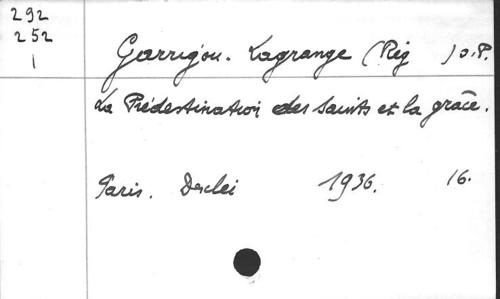 292
252
1
Garrigou. Lagrange (Rég ) O.P.
La Prédestination des Saints et la grâce.
Paris. Desclei 1936. 16.